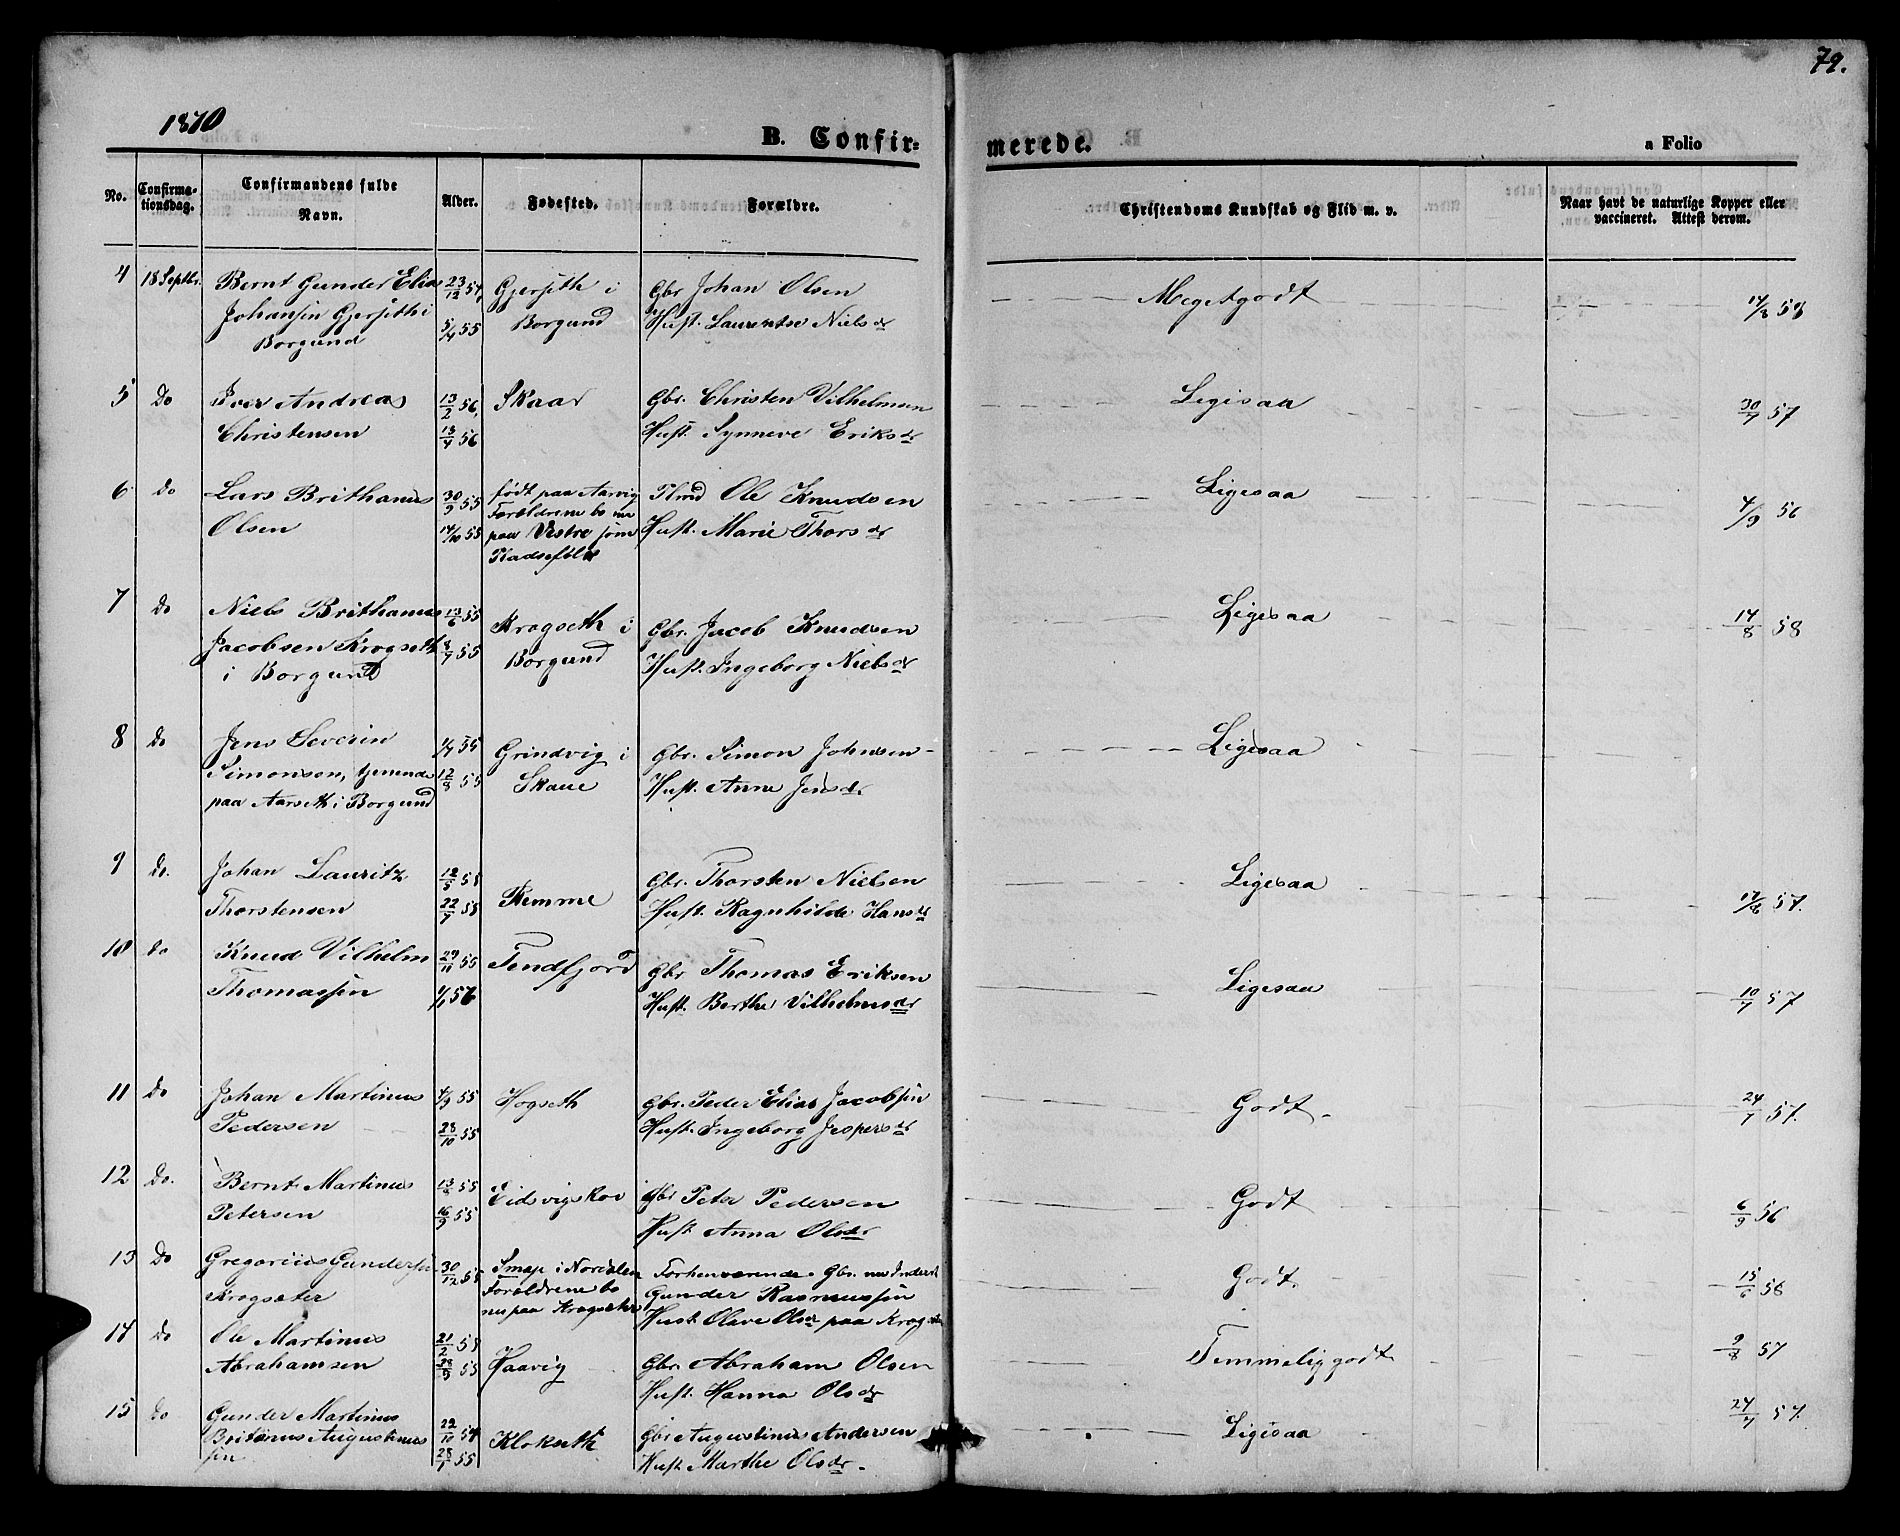 79.
1870
B. Confir=
merede.
a Folio
No.
Confirma-
tionsdag.
Confirmandens fulde
Navn.
Alder.
Fødested.
Forældre.
Christendoms Kundskab og Flid m. v.
Naar havt de naturlige Kopper eller
vaccineret. Attest derom.
4 18 Septbr. Bernt Gunder Elias 23/12 54 Gjerseth i Gbr Johan Olsen Megetgodt 14/8 58
Johansen Gjerseth i 5/4 55 Borgund Hust. Laurentse Nielsdr
Borgund
5 Do Iver Andreas 13/2 56 Skaar Gbr. Christen Vilhelmsen Ligesaa 30/7 57
Christensen 13/4 56 Hust. Synneve Eriksdr
6 Do Lars Brithanus 30/9 55 født paa Aarvig Ole Knudsen Ligesaa 4/9 56
Olsen 14/10 55 Forældrene bo nu Hust. Marie Thorsdr
paa Vestre
7 Do Niels Brithanus 13/6 55 Krogseth i Gbr. Jacob Knudsen Ligesaa 14/8 58
Jacobsen Krogseth 8/7 55 Borgund Hust. Ingeborg Nielsdr
i Borgund
8 Do Jens Severin 1/7 55 Grindvig i Gbr. Simon Johnsen Ligesaa
Simonsen, tjenende 12/8 55 Skaue Hust. Anne Jensdr
paa Aarseth i Borgund
9 Do. Johan Lauritz 12/5 55 Remme Gbr. Thorsten Nielsen Ligesaa 17/6 57.
Thorstensen 22/7 55 Hust. Ragnhilde Hansdr
10 Do Knud Vilhelm 29/11 55 Tendfjord Gbr Thomas Eriksen Ligesaa 10/7 57
Thomassen 1/1 56 Hust. Berthe Vilhelmsdr
11 Do Johan Martinus 4/9 55 Hogseth Gbr. Peder Elias Jacobsen Godt 24/7 57.
Pedersen 28/10 55 Hust. Ingeborg Jespersdr
12 Do. Bernt Martinus 13/8 55 Eidsvigskov Gbr Peter Pedersen Godt 6/9 56
Petersen 16/9 55 Hust Anna Olsdr
13 Do Gregorius Gundersen 30/12 55 i Nordalen Forhenværende Gbr. nu Inderst Godt 15/6 58
Krogsæter Forældrene bo Gunder Rasmussen
nu paa Krogsæter Hust. Olave Olsdr paa Krogsæter
14 Do Ole Martinus 21/2 55 Haavig Gbr. Abraham Olsen Temmelig godt 9/8 57
Abrahamsen 28/5 55 Hust. Hanna Olsdr
15 Do Gunder Martinus 22/11 54 Klokseth Gbr Augustinus Andersen Ligesaa 24/7 57.
Britanus Augustinus 28/1 55 Hust. Marthe Olsdr
sen